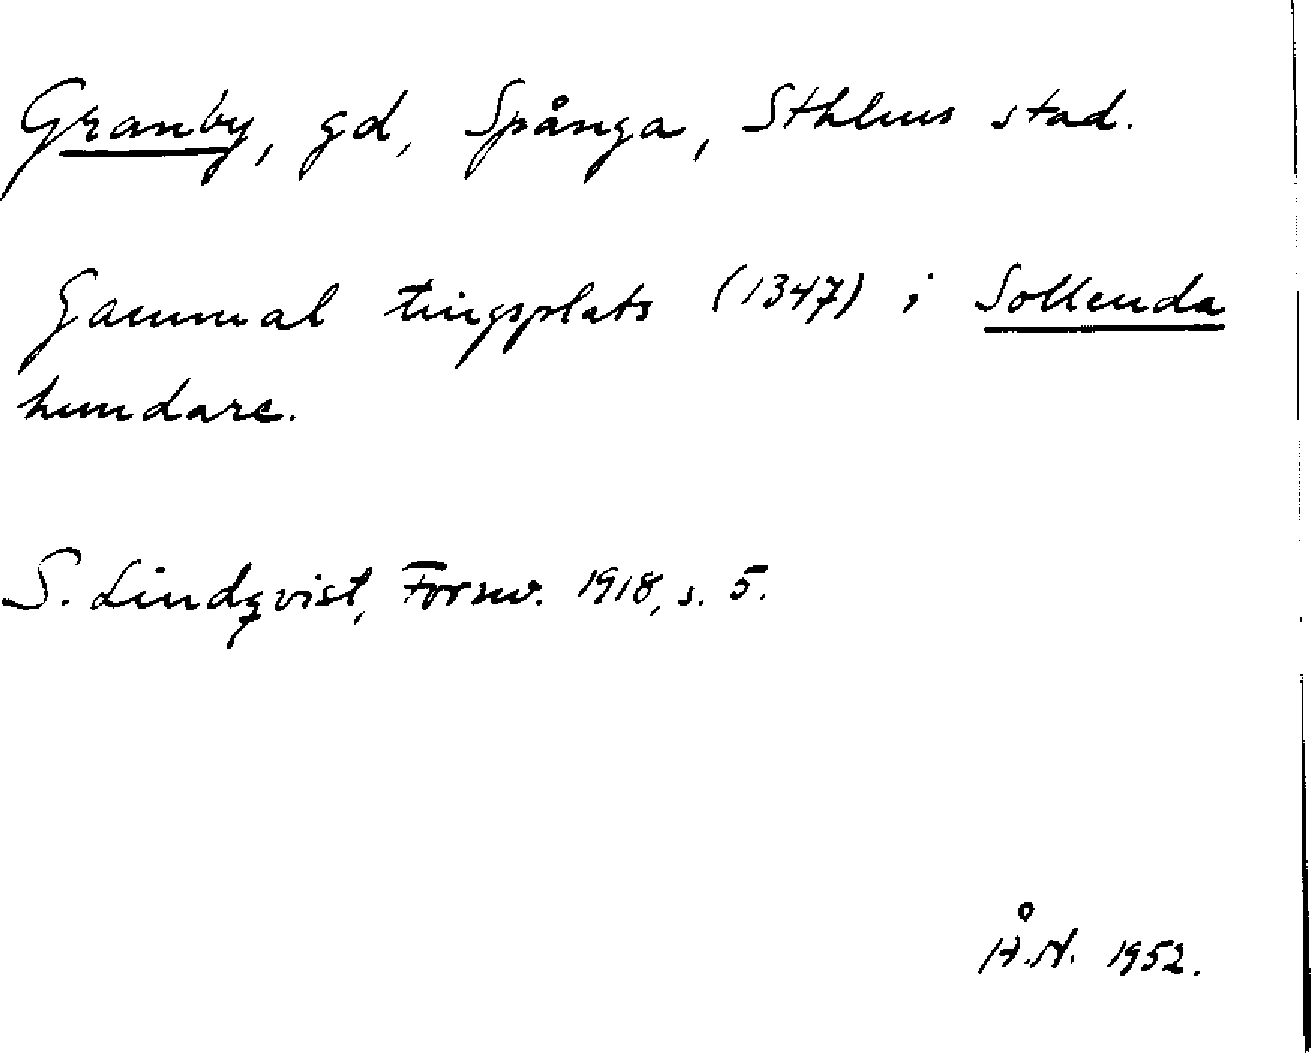 Granby, gd, Spånga, Sthlms stad.
Gammal tingsplats (1347) i Sollenda
hundare.
S. Lindqvist, Fornv. 1918, s. 5.
Å.N. 1952.